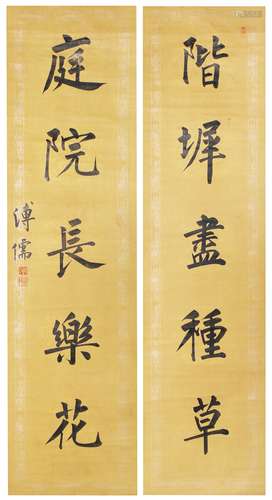 階墀盡種草
庭院長樂花
溥儒